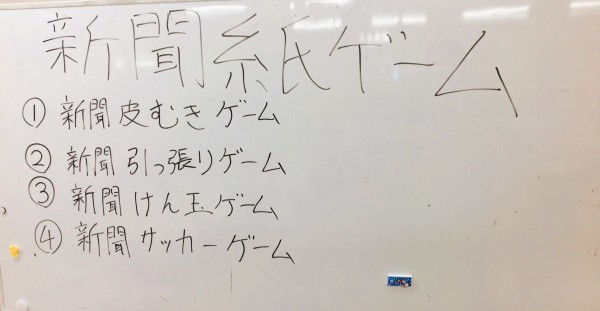 新聞紙ゲーム
① 新聞皮むきゲーム
② 新聞引っ張りゲーム
③ 新聞けん玉ゲーム
④ 新聞サッカーゲーム